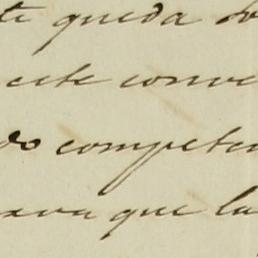 te queda so
este conve
do competen
para que la